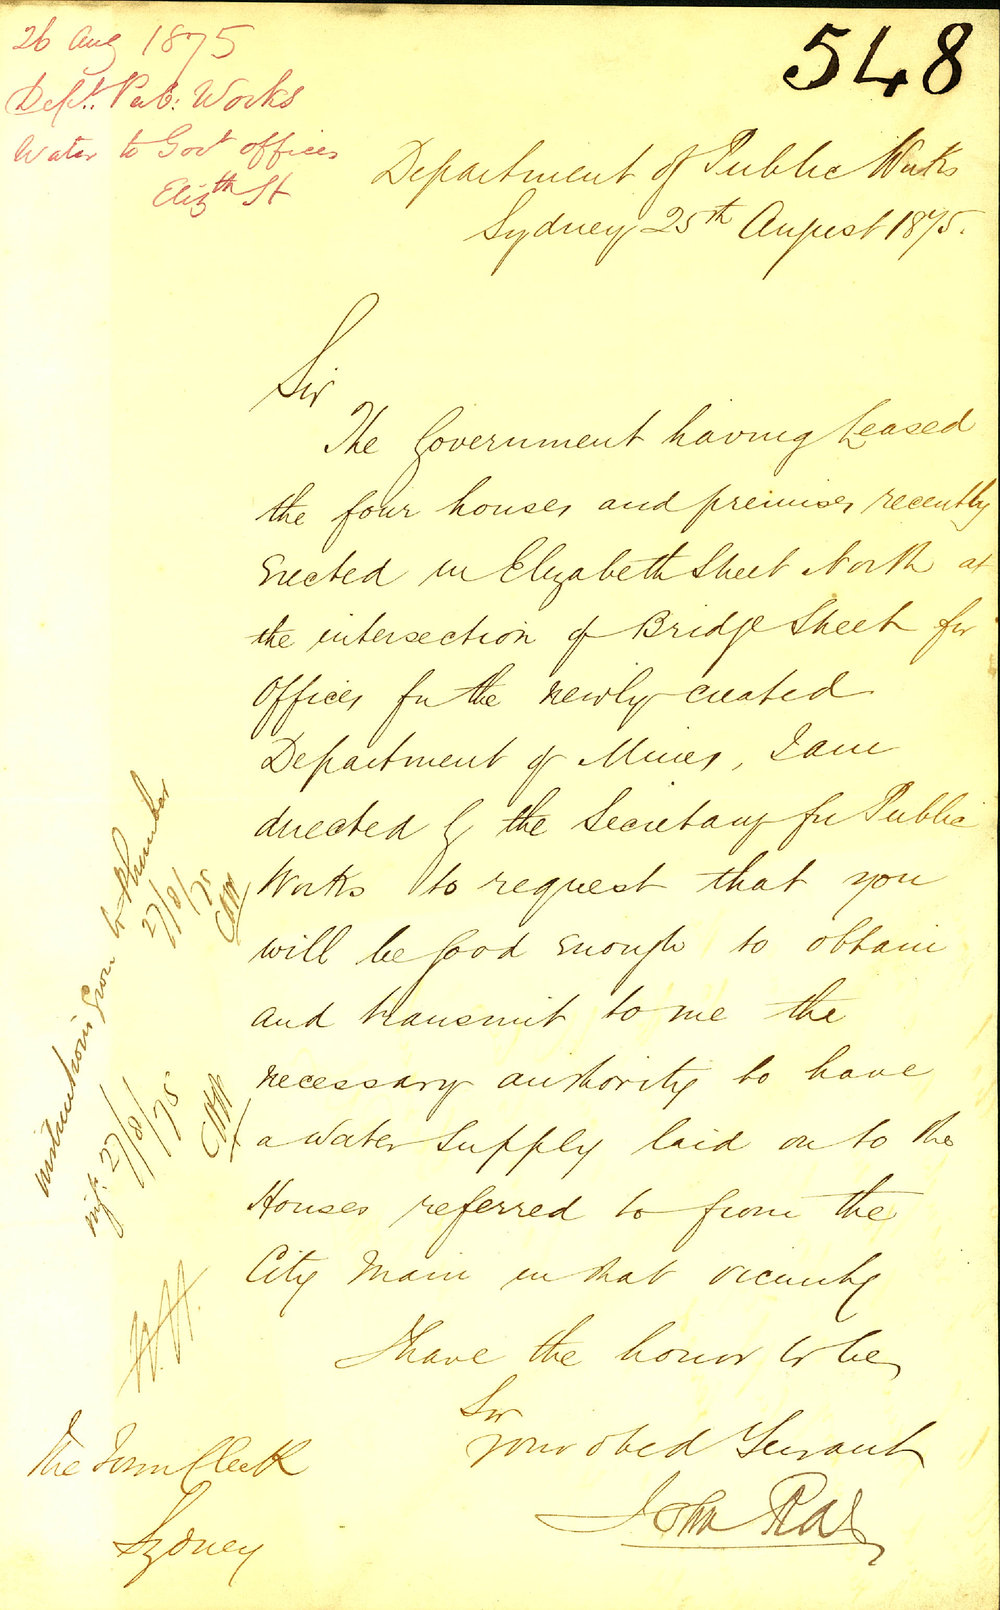 26 Aug 1875
Dept. Pub: Works
Water to Govt offices
Elizth St
548
Department of Public Works
Sydney 25th August 1875.
Sir
The Government having Leased
the four houses and premises recently
Erected in Elizabeth Street North at
the intersection of Bridge Street for
Offices for the newly created
Department of Mines, I am
directed by the Secretary for Public
Works to request that you
will be good enough to obtain
and transmit to me the
necessary authority to have
a Water Supply laid on to the
Houses referred to from the
City Main in that vicinity
I have the honor to be,
Sir
your obed Servant
John Rae
The Town Clerk
Sydney
instructions given to Plumber
27/8/75
27/8/75